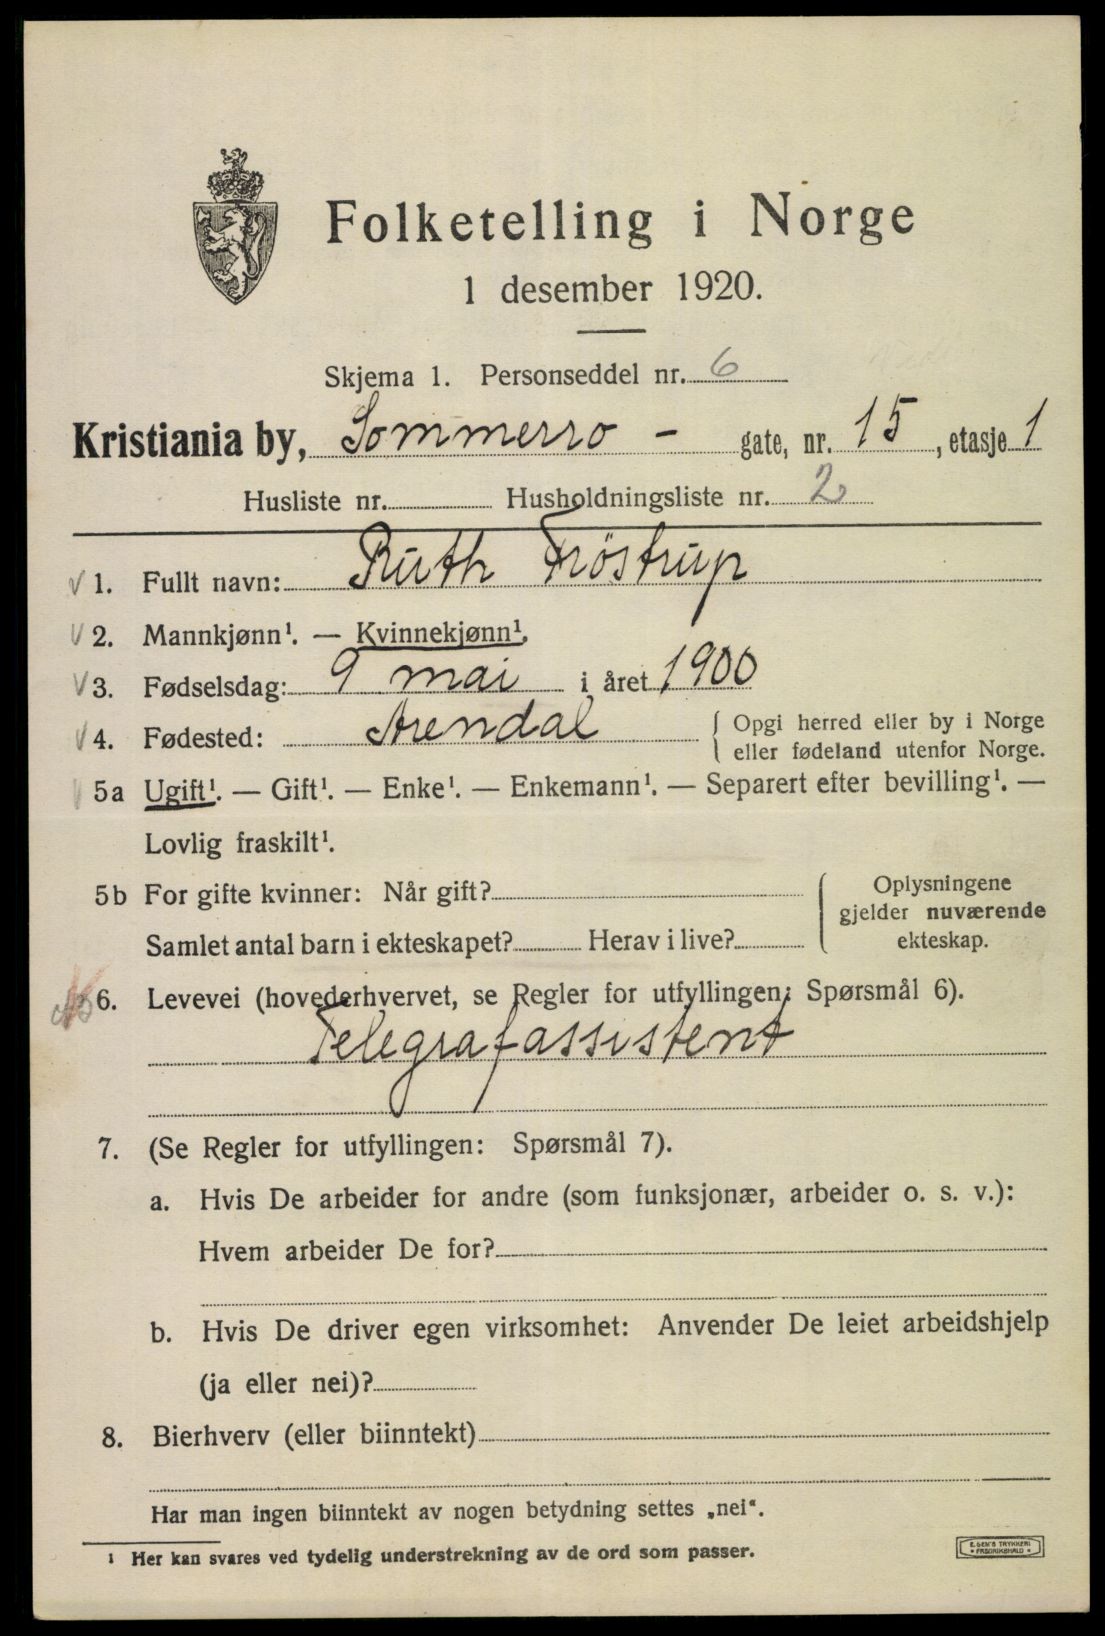 Folketelling i Norge
1 desember 1920.
Skjema 1. Personseddel nr. 6
Kristiania by, Sommerro - gate, nr. 15, etasje 1
Husliste nr. Husholdningsliste nr. 2
√ 1. Fullt navn: Ruth Fröstrup
√ 2. Mannkjønn¹. — Kvinnekjønn¹.
√ 3. Fødselsdag: 9 mai i året 1900
√ 4. Fødested: Arendal { Opgi herred eller by i Norge
eller fødeland utenfor Norge.
5a Ugift¹. — Gift¹. — Enke¹. — Enkemann¹. — Separert efter bevilling¹. —
Lovlig fraskilt¹.
5b For gifte kvinner: Når gift?
Samlet antal barn i ekteskapet? Herav i live?
{ Oplysningene
gjelder nuværende
ekteskap.
6. Levevei (hovederhvervet, se Regler for utfyllingen: Spørsmål 6).
Telegrafassistent
7. (Se Regler for utfyllingen: Spørsmål 7).
a. Hvis De arbeider for andre (som funksjonær, arbeider o. s. v.):
Hvem arbeider De for?
b. Hvis De driver egen virksomhet: Anvender De leiet arbeidshjelp
(ja eller nei)?
8. Bierhverv (eller biinntekt)
Har man ingen biinntekt av nogen betydning settes „nei“.
¹ Her kan svares ved tydelig understrekning av de ord som passer.
E. SEM'S TRYKKERI
• FREDRIKSHALD •